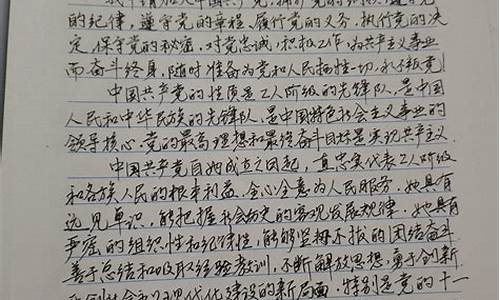 的纪律，遵守党的章程，履行党的义务，执行党的决
定，保守党的秘密，对党忠诚，积极工作，为共产主义事业
而奋斗终身，随时准备为党和人民牺牲一切，永不叛党
中国共产党的性质是工人阶级的先锋队，是中国
人民和中华民族的先锋队，是中国特色社会主义事业的
领导核心，党的最高理想和最终奋斗目标是实现共产主义.
中国共产党自她成立之日起，直忠实代表工人阶级
和各族人民的根本利益，全心全意为人民服务．她具有
远见卓识，能把握社会历史的客观发展规律．她具有
严密的组织性和纪律性，能够坚持不拔的团结奋斗
善于总结和吸取经验教训，不断解放思想，勇于创新
现代化建设的新局面，特别是党的十一